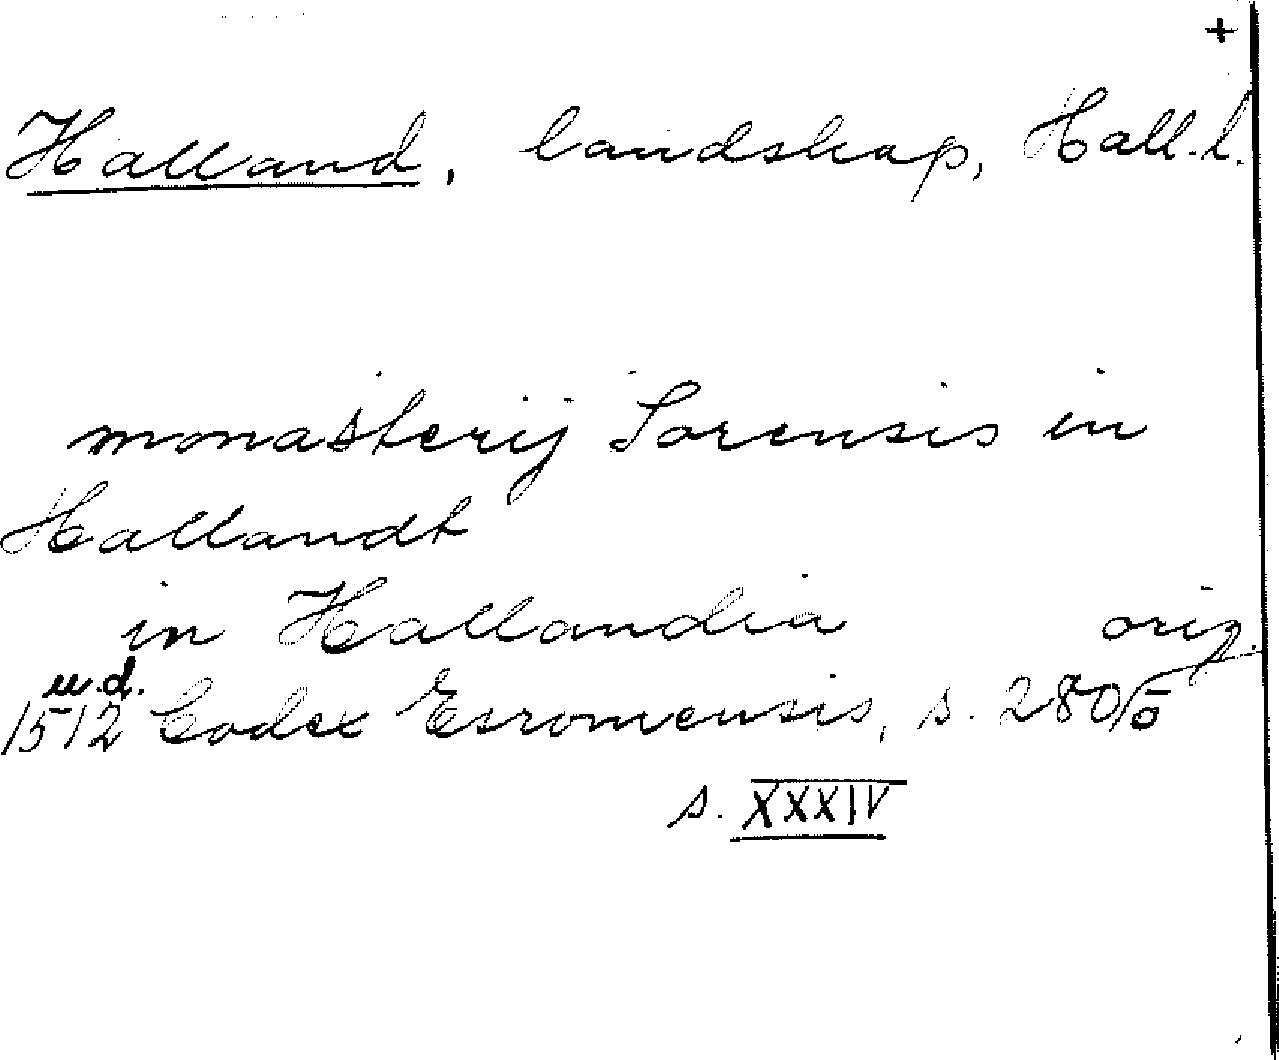 +
Halland, landskap, Hall.l.
monasterij Sorensis in
Hallandt
in Hallandia orig.
u.d.
1512 Codex Esromensis, s. 280
s. XXXIV